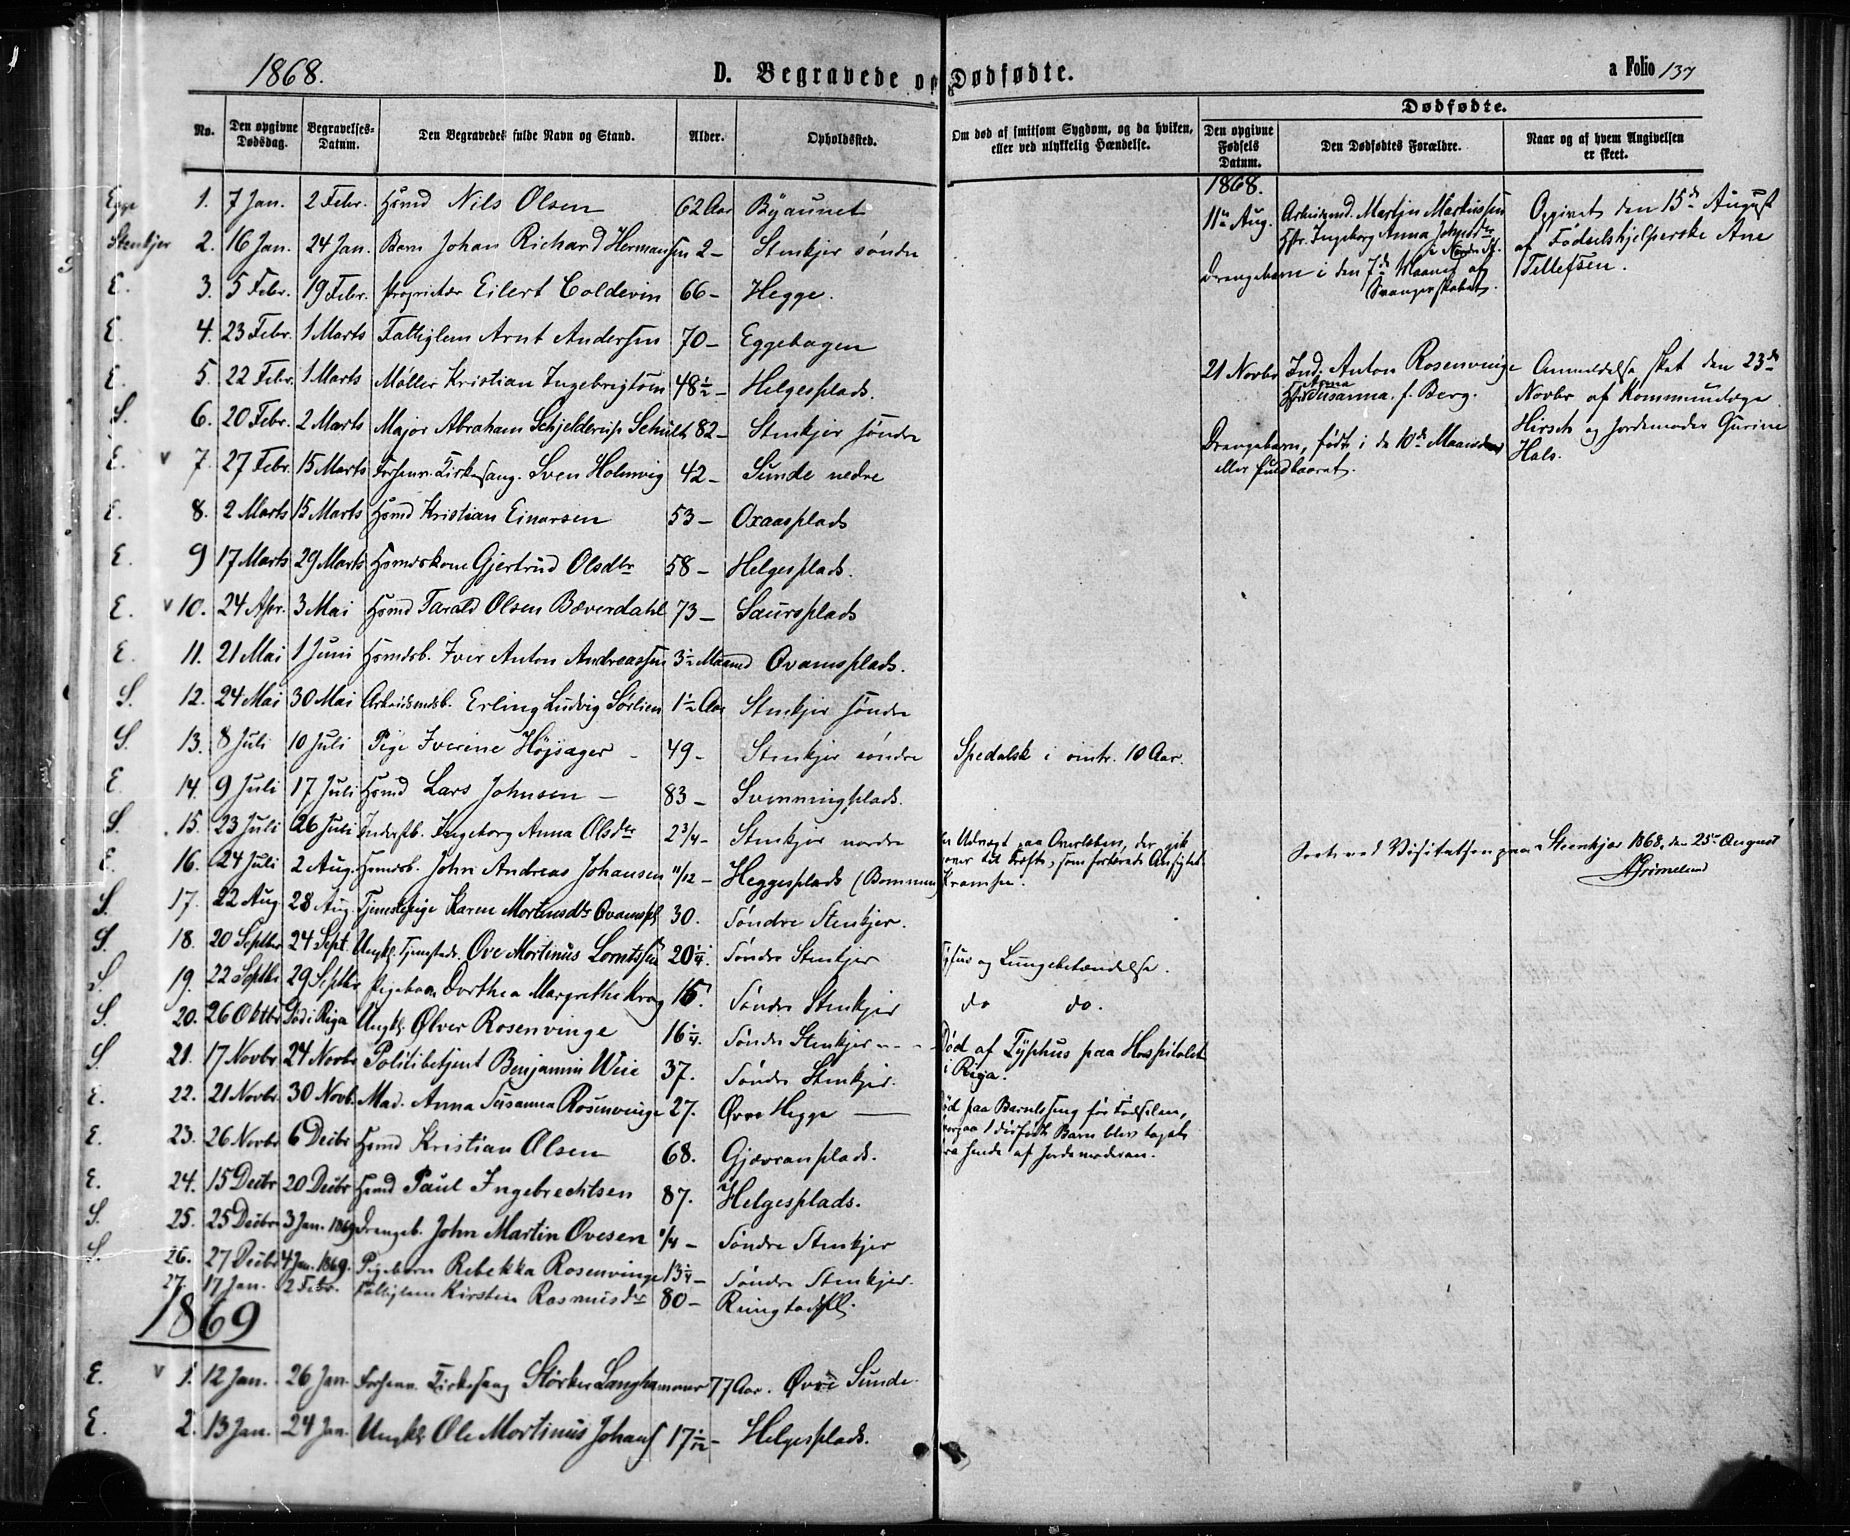 1868.
D. Begravede og Dødfødte.
a Folio 137
No.
Den opgivne Dødsdag.
Begravelses-Datum.
Den Begravedes fulde Navn og Stand.
Alder.
Opholdssted.
Om død af smitsom Sygdom, og da hvilken, eller ved ulykkelig Hændelse.
Dødfødte.
Den opgivne Fødsels Datum.
Den Dødfødtes Forældre.
Naar og af hvem Angivelsen er skeet.
Egge 1. 7 Jan. 2 Febr. Hsmd Nils Olsen 62 Aar Byaunet
Stenkjer 2. 16 Jan. 24 Jan. Barn Johan Richard Hermansen 2 – Stenkjer søndre
E. 3. 5 Febr. 19 Febr. Proprietær Eilert Coldevin 66 – Hegge.
E. 4. 23 Febr. 1 Marts Fattiglem Arnt Andersen 70 – Eggehagen
E. 5. 22 Febr. 1 Marts Møller Kristian Ingebrigtsen 48½ – Helgesplads.
S. 6. 20 Febr. 2 Marts Major Abraham Schjelderup Schult 82 – Stenkjer søndre
E. v 7. 27 Febr. 15 Marts Forhenv. Kirkesang. Sven Holmvig 42 – Sunde nedre
E. 8. 2 Marts 15 Marts Hsmd Kristian Einarsen 53 – Oxaasplads
E. 9 17 Marts 29 Marts Hsmdskone Gjertrud Olsdtr 58 – Helgesplads.
E. v 10. 24 Apr. 3 Mai Hsmd Tarald Olsen Bæverdahl 73 – Saursplads
E. 11. 21 Mai 1 Juni Hsmdsb. Iver Anton Andreassen 3½ Maaned Qvamsplads.
S. 12. 24 Mai 30 Mai Arbeidsmdsb. Erling Ludvig Sørlien 1½ Aar Stenkjer søndre
S. 13. 8 Juli 10 Juli Pige Iverine Højsager – 49 – Stenkjer søndre Spedalsk i omtr. 10 Aar.
E. 14. 9 Juli 17 Juli Hsmd Lars Johnsen – 83 – Svenningplads.
S. 15. 23 Juli 26 Juli Inderstb. Ingeborg Anna Olsdtr 2¾ – Stenkjer nordre
E. 16. 24 Juli 2 Aug. Hsmdsb. John Andreas Johansen 11/12 – Heggesplads (Bommen)
Udvæxt paa Overlæben, der gik
over til Kræft, som fortærede Ansigtet
Krampe.
S. 17. 22 Aug 28 Aug. Tjenestepige Karen Mortensdtr Qvamspl 30. Søndre Stenkjer.
S. 18. 20 Septbr 24 Sept. Ungkl. Tjenestedr. Ove Mortinus Lorntssen 20¼. Søndre Stenkjer Tyfus og Lungebetændelse.
S. 19. 22 Septbr 29 Septbr Pigebarn Dorthea Margrethe Krog 15. Søndre Stenkjer do do.
S. 20. 26 Oktbr Død i Riga Ungkl. Ølver Rosenvinge 16¼. Søndre Stenkjer – – – Død af Typhus paa Hospitalet
i Riga.
S. 21. 17 Novbr 24 Novbr Politibetjent Benjamin Weie 37. Søndre Stenkjer.
E. 22. 21 Novbr. 30 Novb. Mad. Anna Susanna Rosenvinge 27. Øvre Hegge – Død paa Barselseng før Fødselen,
hvorpaa 1 dødfødt Barn blev taget
fra hende af Jordemoderen.
E. 23. 26 Novbr 6 Decbr Hsmd Kristian Olsen 68. Gjævranplads.
E. 24. 15 Decbr 20 Decbr Hsmd Paul Ingebrechtsen 87. Helgesplads.
S. 25. 25 Decbr 3 Jan. 1869 Drengeb. John Martin Ovesen ¼ – Søndre Stenkjer
S. 26. 27 Decbr 4 Jan. 1869. Pigebarn Rebekka Rosenvinge 13¼ – Søndre Stenkjer.
27. 17 Jan. 2 Febr. Fattiglem Kirsten Rasmusdtr 80 – Rungstadpl.
1869
E. v 1. 12 Jan. 26 Jan. Forhenv. Kirkesang Størker Langhammer 77 Aar. Øvre Sunde.
E. 2. 13 Jan. 24 Jan. Ungkl. Ole Mortinus Johans 17 1/12 – Helgesplads.
1868.
11te Aug. Arbeidsmd. Martin Markussen
Hstr. Ingeborg Anna
Drengebarn i den 7de Maaned af
Svangerskabet.
Opgivet den 15de August
af Fødselshjelperske Ane
Tellefsen.
21 Novbr Ind. Anton Rosenvinge
Hstr Anna Susanna f. Berg.
Drengebarn, født i de 10de Maaneder
eller fuldbaaret.
Anmeldelse skeet den 23de
Novbr af Kommunelæge
Hirsch og Jordemoder Gurine
Hals.
Seet ved Visitatsen paa Steenkjær 1868, den 25de August
AGrimelund